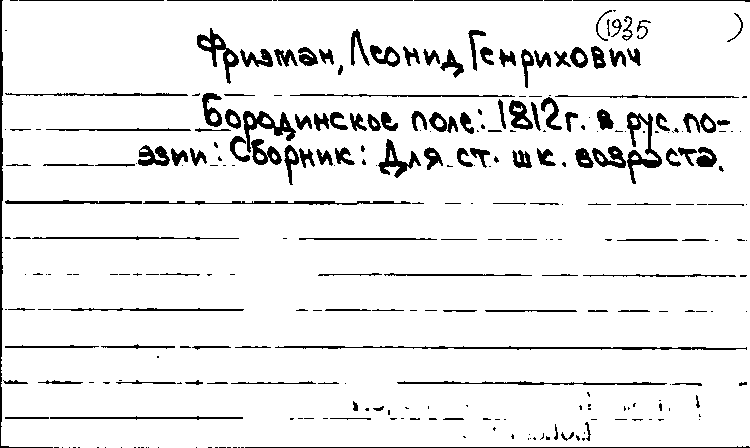 (1935 )
Фризман, Леонид Генрихович
Бородинское поле: 1812 г. в рус. по-
эзии: Сборник: Для ст. шк. возраста.